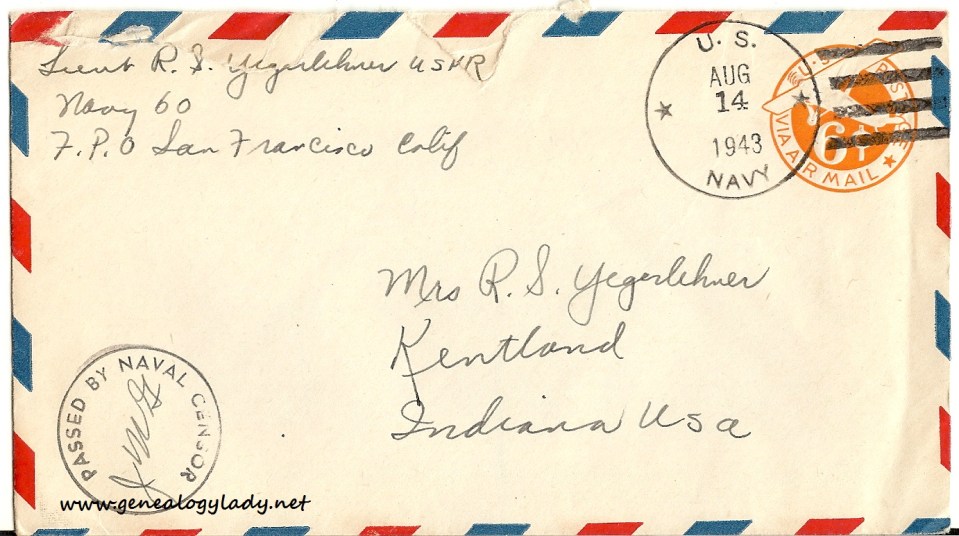 Lieut R. S. Yegerlehner USNR
Navy 60
F.P.O San Francisco Calif
U. S.
AUG
14
1943
NAVY
U.S. POSTAGE
6¢
VIA AIR MAIL
Mrs R. S. Yegerlehner
Kentland
Indiana USA
PASSED BY NAVAL CENSOR
www.genealogylady.net